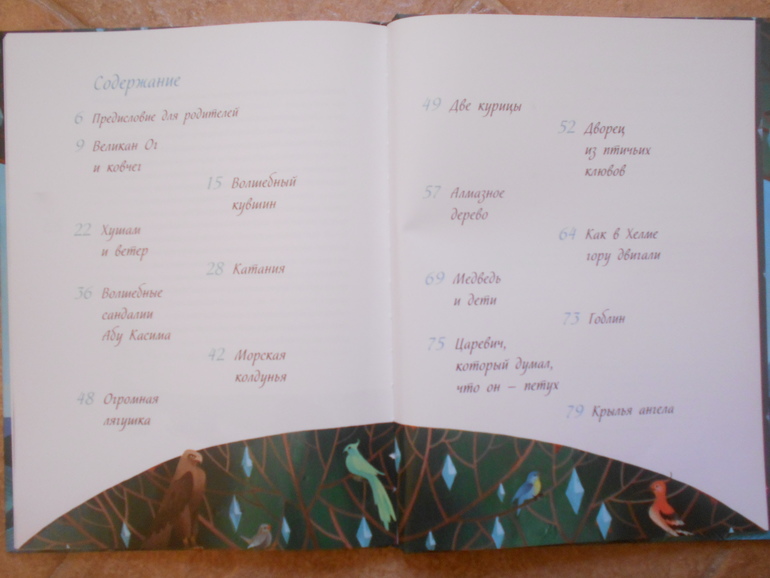 Содержание
6 Предисловие для родителей
9 Великан Ог
и ковчег
15 Волшебный
кувшин
22 Хушам
и ветер
28 Катания
36 Волшебные
сандалии
Абу Касима
42 Морская
колдунья
48 Огромная
лягушка
49 Две курицы
52 Дворец
из птичьих
клювов
57 Алмазное
дерево
64 Как в Хелме
гору двигали
69 Медведь
и дети
73 Гоблин
75 Царевич,
который думал,
что он – петух
79 Крылья ангела